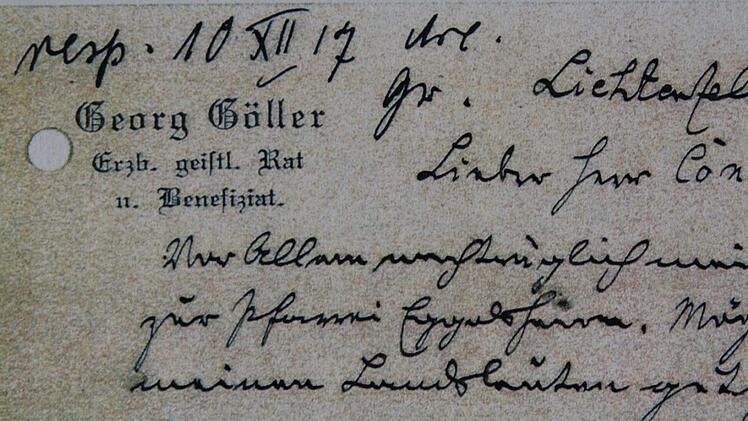 resp. 10 XII 17
Georg Göller
Erzb. geistl. Rat
u. Benefiziat.
Gr. Lichtenfel
Lieber Herr Con
Vor Allem nachträglich mei
zur Pfarrei Eggolsheim. Mög
meinen Landsleuten